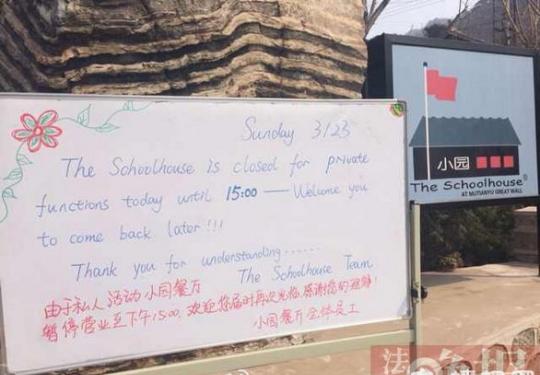 Sunday 3/23
The Schoolhouse is closed for private
functions today until 15:00 — Welcome you
to come back later!!!
Thank you for understanding......
The Schoolhouse Team
由于私人活动小园餐厅
暂停营业至下午15:00,欢迎您届时再次光临,感谢您的理解!
小园餐厅全体员工
小园
The Schoolhouse®
AT MUTIANYU GREAT WALL
法